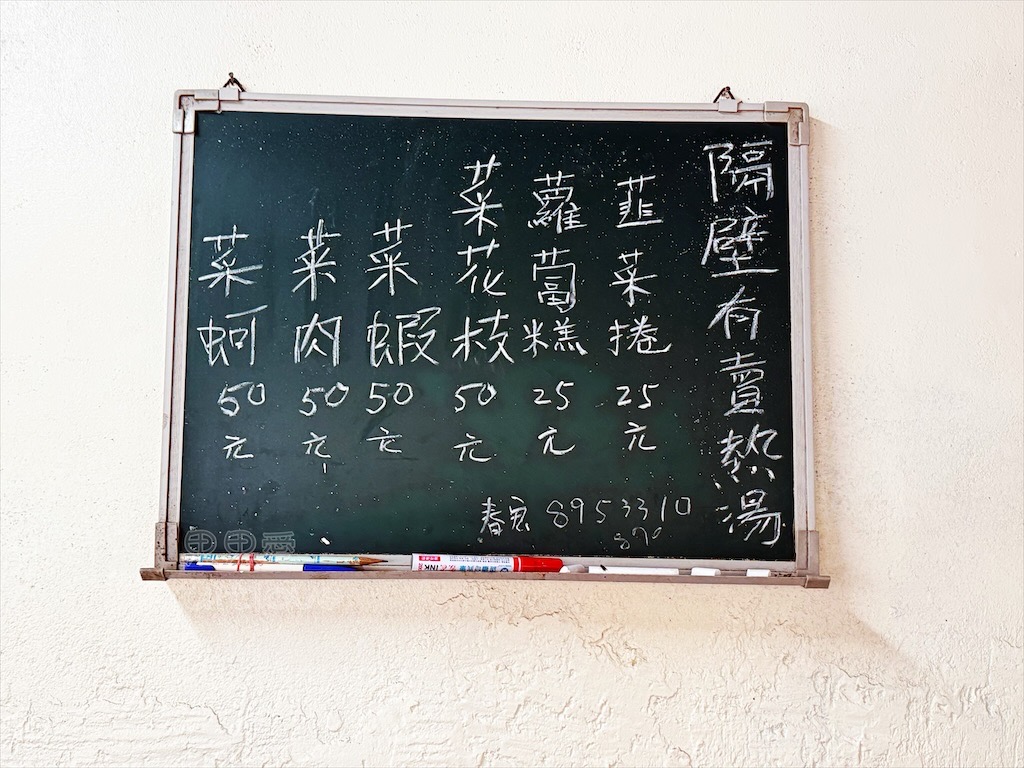 隔壁有賣熱湯
韮菜捲25元
蘿蔔糕25元
菜花枝50元
菜蝦50元
菜肉50元
菜蚵50元
8953310
甲甲愛